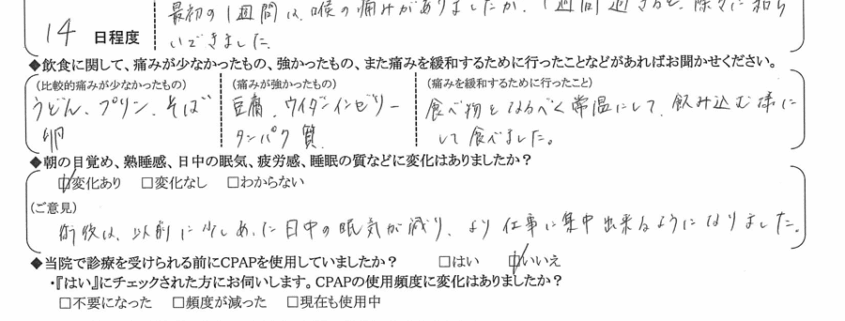 最初の1週間は、喉の痛みがありましたが、1週間過ぎると、徐々に和ら
14 日程度
いできました。
◆飲食に関して、痛みが少なかったもの、強かったもの、また痛みを緩和するために行ったことなどがあればお聞かせください。
(比較的痛みが少なかったもの) (痛みが強かったもの) (痛みを緩和するために行ったこと)
うどん、プリン、そば 豆腐、ウイダーインゼリー 食べ物をなるべく常温にして、飲み込む様に
卵 タンパク質 して食べました。
◆朝の目覚め、熟睡感、日中の眠気、疲労感、睡眠の質などに変化はありましたか？
☑変化あり □変化なし □わからない
(ご意見)
術後は、以前に少しあった日中の眠気が減り、より仕事に集中出来るようになりました。
◆当院で診療を受けられる前にCPAPを使用していましたか？ □はい ☑いいえ
・『はい』にチェックされた方にお伺いします。CPAPの使用頻度に変化はありましたか？
□不要になった □頻度が減った □現在も使用中